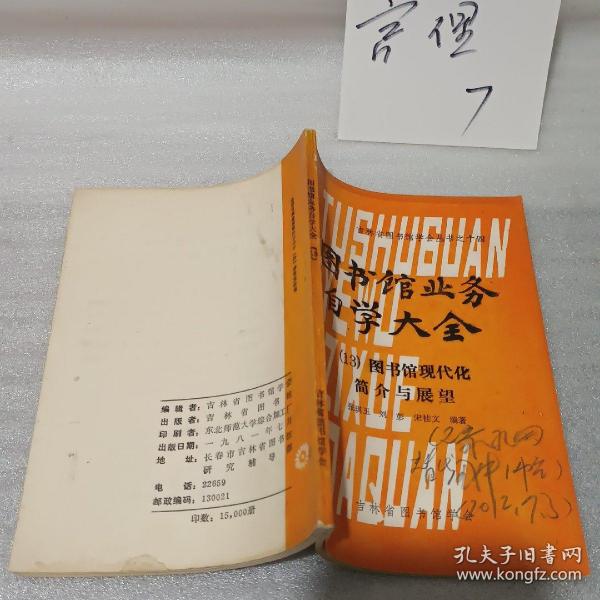 言俚
7
吉林省图书馆学会丛书之十四
TUSHUGUAN
图书馆业务
YEWU
自学大全
ZIXUE
(13) 图书馆现代化
简介与展望
编著
DAQUAN
吉林省图书馆学会
图书馆业务自学大全
编辑者：吉林省图书馆学会
出版者：吉林省图书馆
印刷者：东北师范大学综合加工厂
出版日期：一九八一年七月
地址：长春市吉林省图书馆
研究辅导部
电话：22659
邮政编码：130021
印数：15,000册
孔夫子旧书网
www.kongfz.com